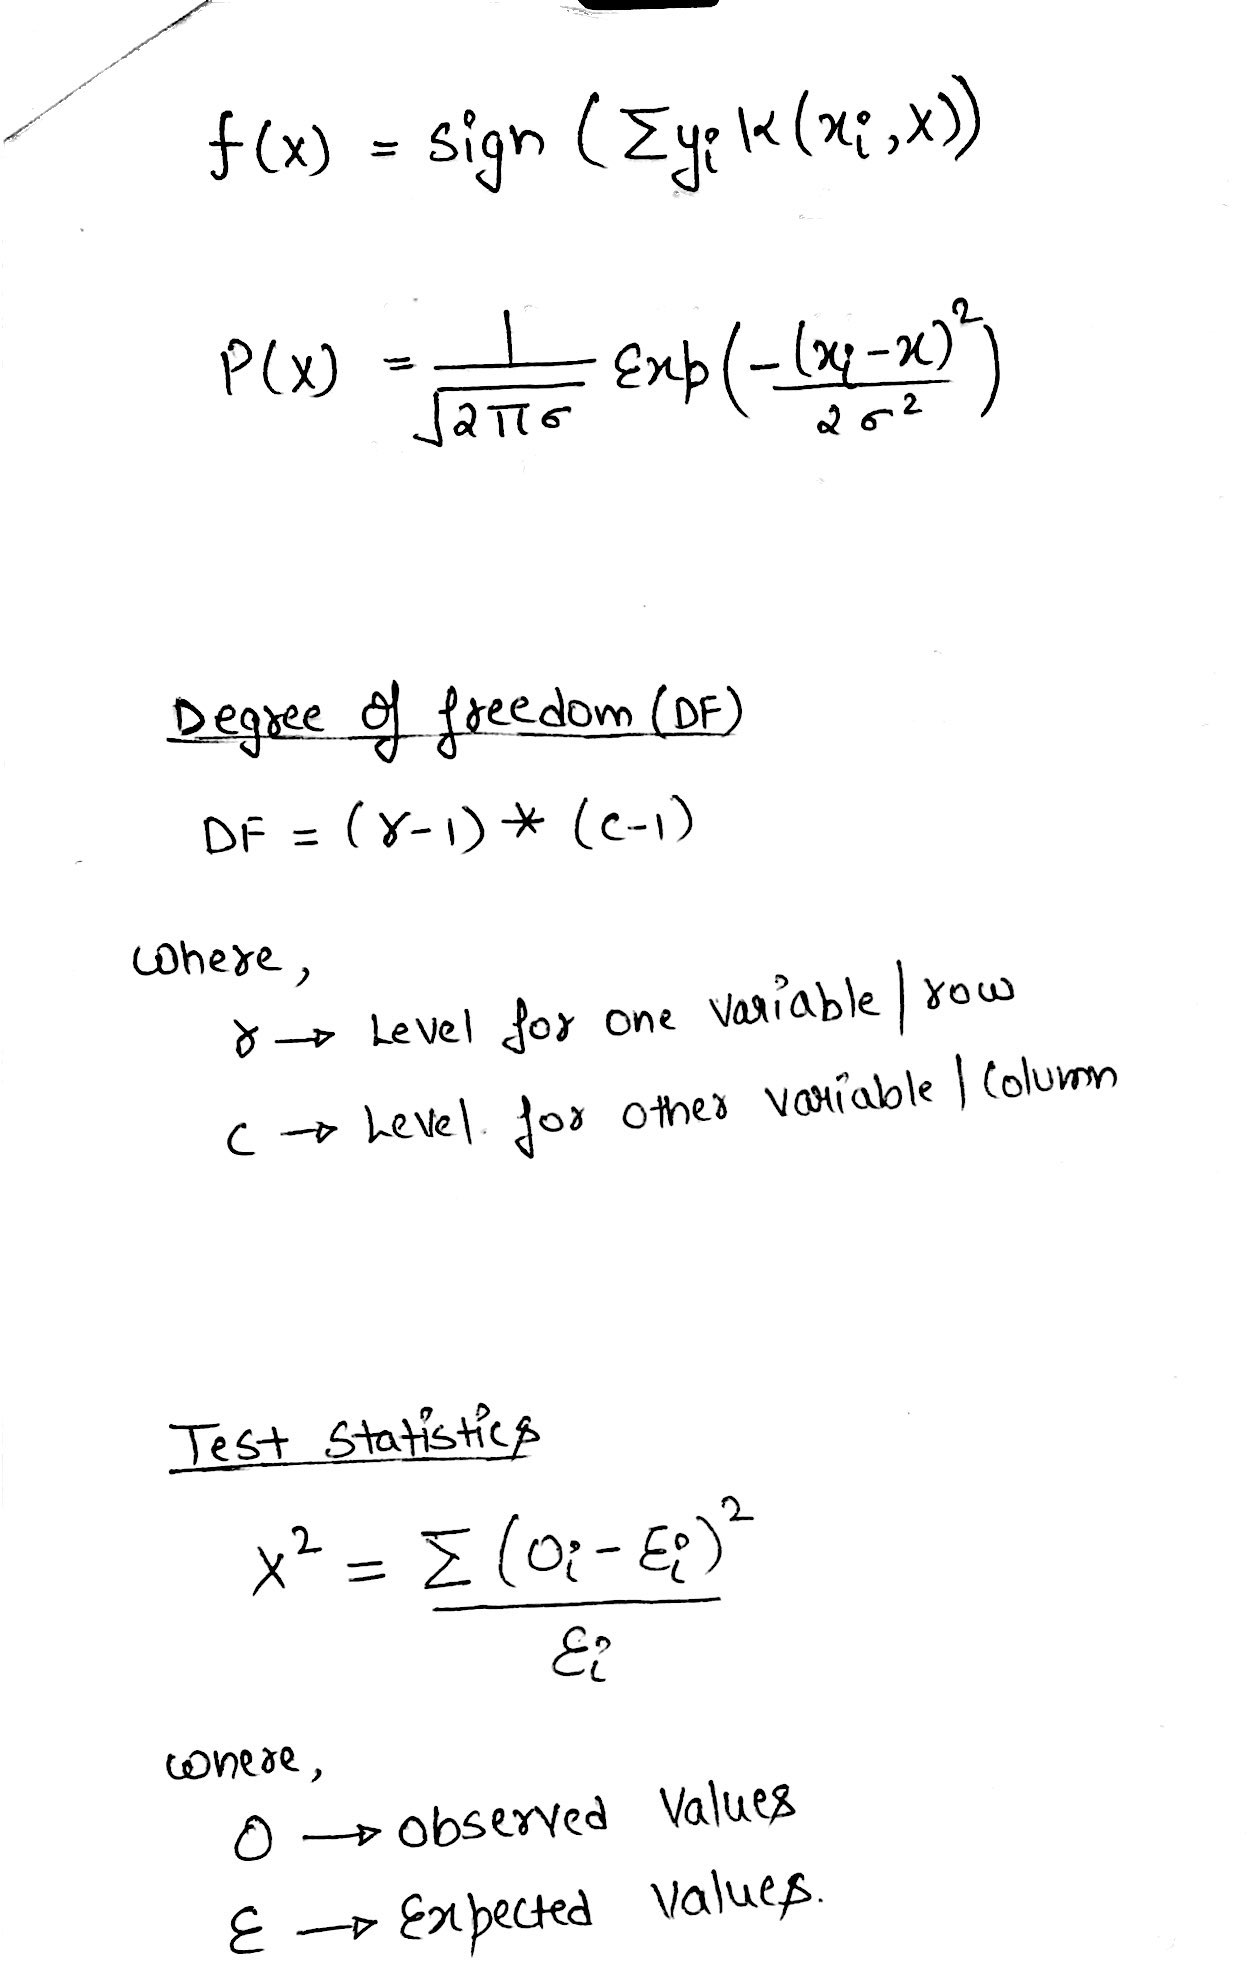 f(x) = sign (Σyᵢ K(xᵢ, x))
P(x) = 1/√2πσ Exp(-(xᵢ-x)²/2σ²)
Degree of freedom (DF)
DF = (r-1) * (c-1)
where,
r → Level for one variable | row
c → Level for other variable | Column
Test Statistics
x² = Σ(Oᵢ-Eᵢ)²/Eᵢ
where,
O → observed Values
E → Expected Values.